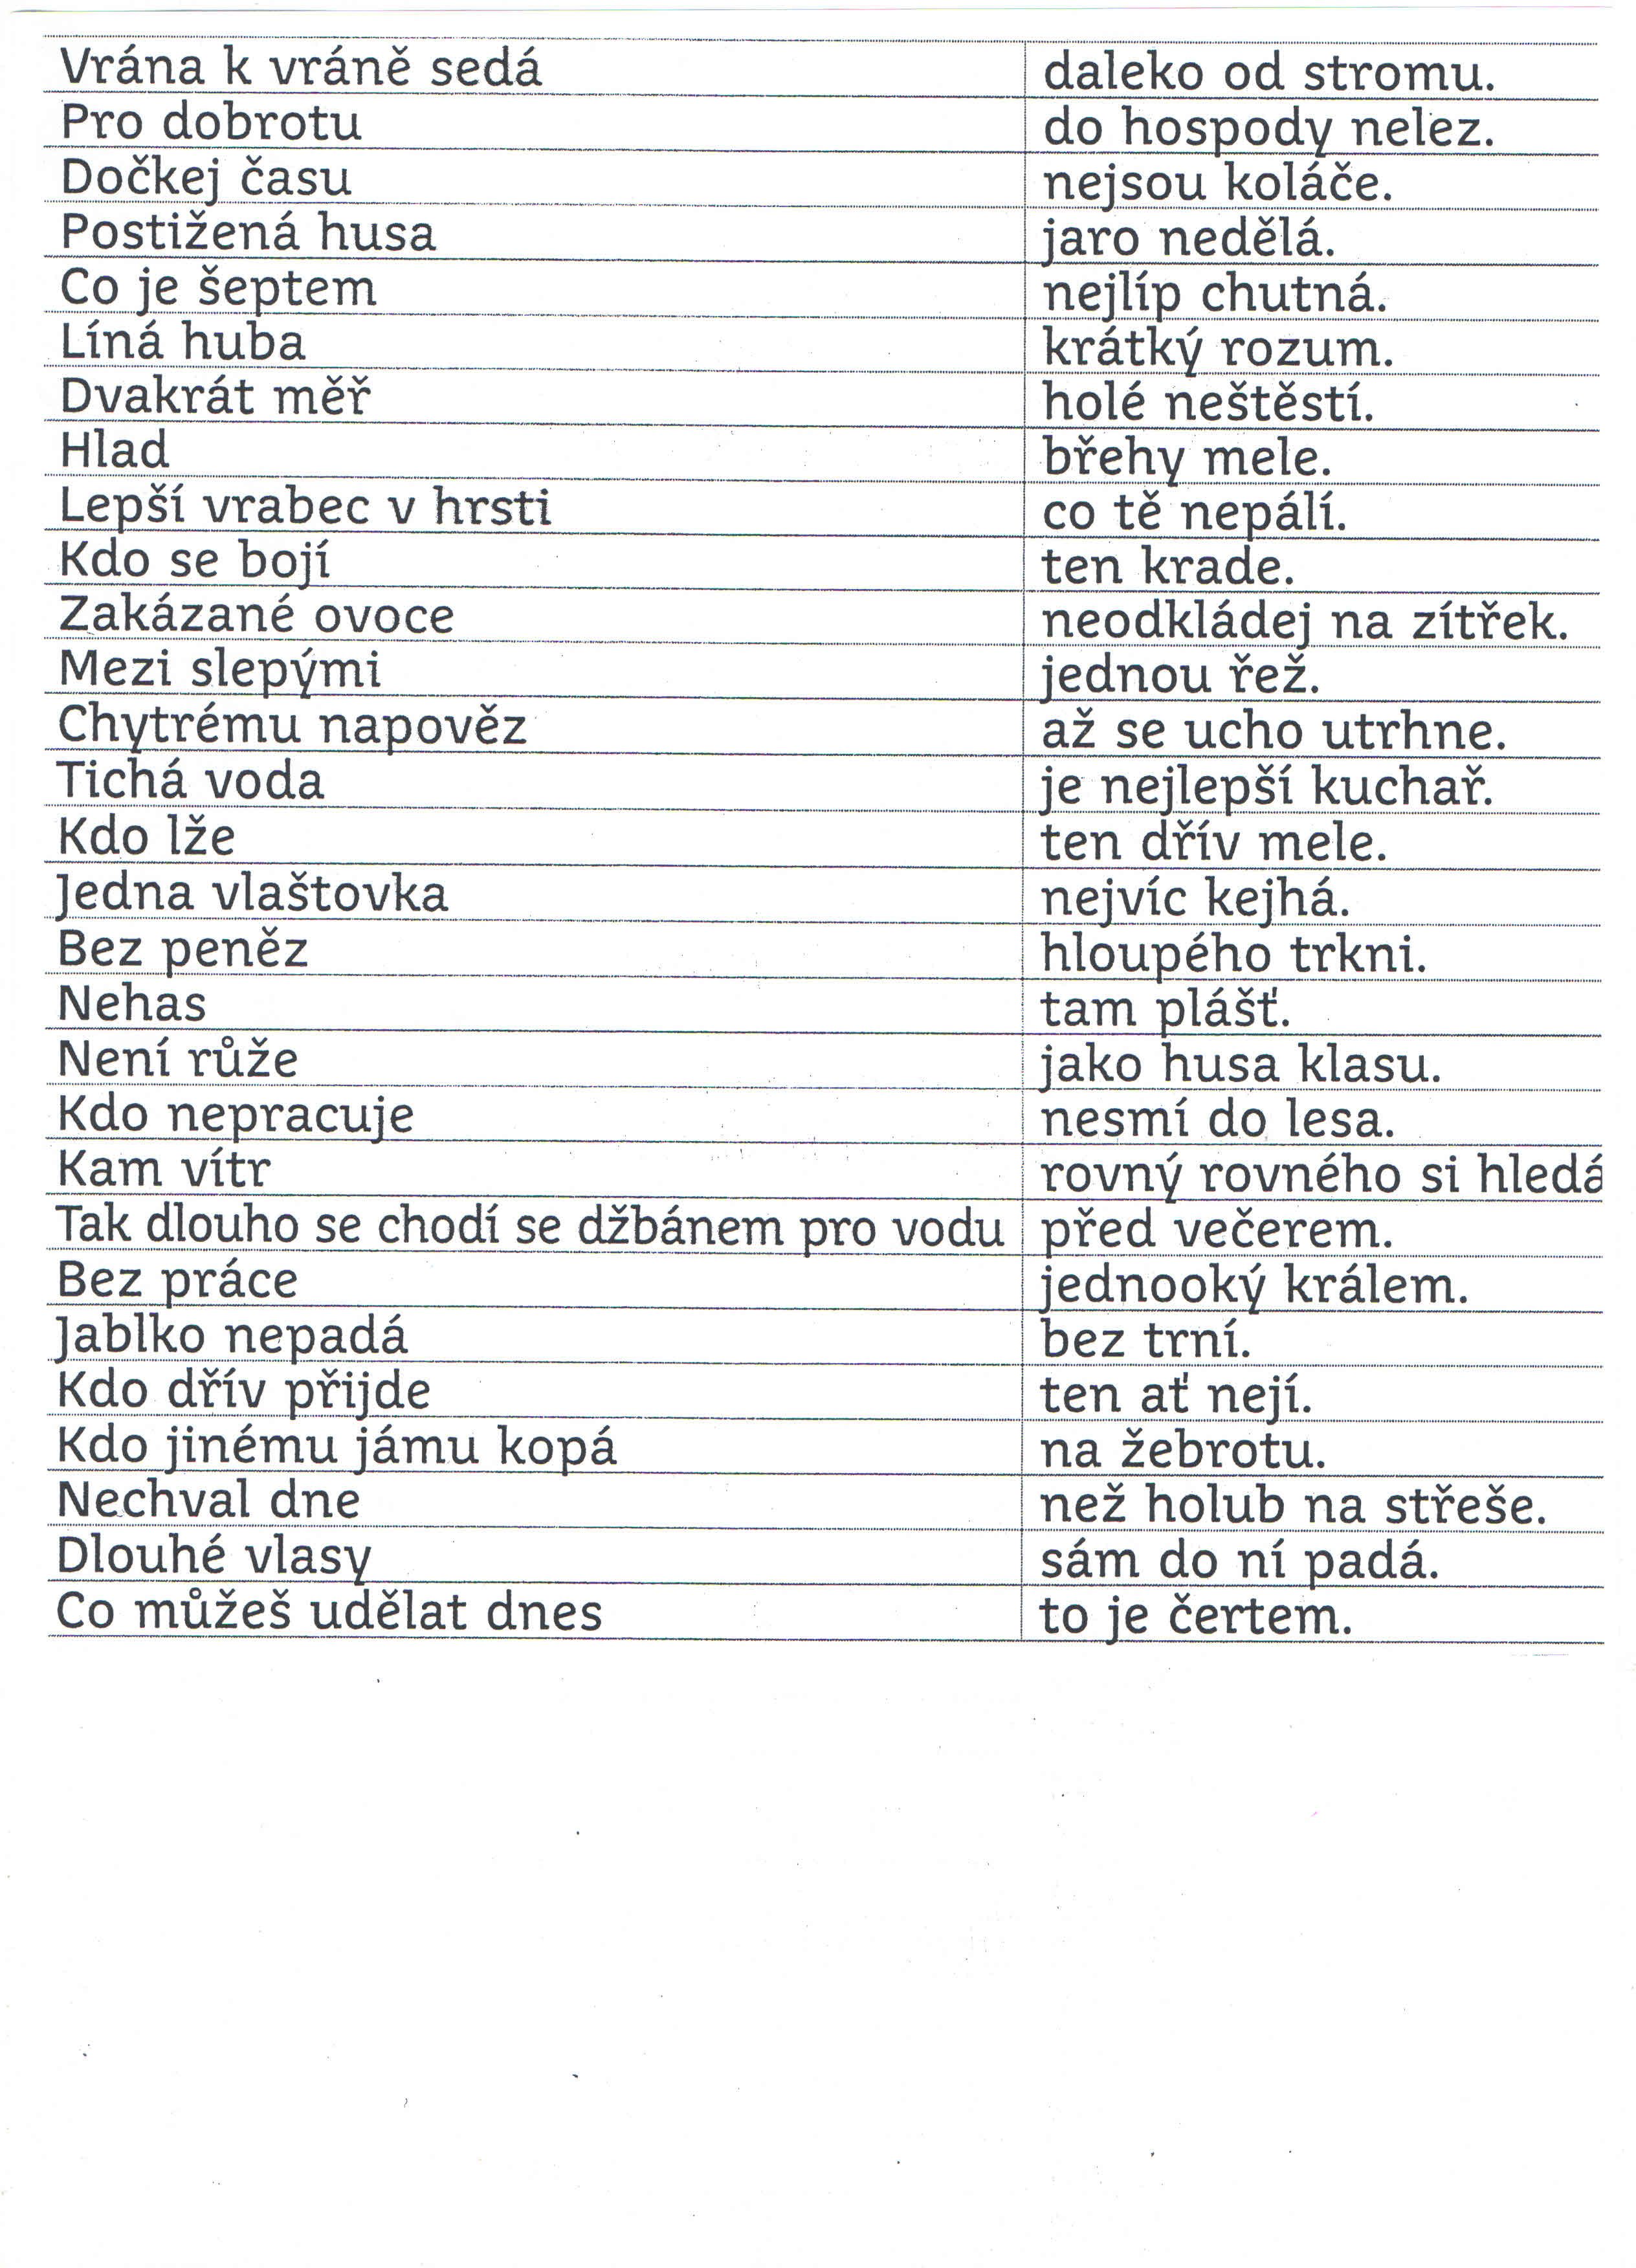 Vrána k vráně sedá daleko od stromu.
Pro dobrotu do hospody nelez.
Dočkej času nejsou koláče.
Postižená husa jaro nedělá.
Co je šeptem nejlíp chutná.
Líná huba krátký rozum.
Dvakrát měř holé neštěstí.
Hlad břehy mele.
Lepší vrabec v hrsti co tě nepálí.
Kdo se bojí ten krade.
Zakázané ovoce neodkládej na zítřek.
Mezi slepými jednou řež.
Chytrému napověz až se ucho utrhne.
Tichá voda je nejlepší kuchař.
Kdo lže ten dřív mele.
Jedna vlaštovka nejvíc kejhá.
Bez peněz hloupého trkni.
Nehas tam plášť.
Není růže jako husa klasu.
Kdo nepracuje nesmí do lesa.
Kam vítr rovný rovného si hledá
Tak dlouho se chodí se džbánem pro vodu před večerem.
Bez práce jednooký králem.
Jablko nepadá bez trní.
Kdo dřív přijde ten ať nejí.
Kdo jinému jámu kopá na žebrotu.
Nechval dne než holub na střeše.
Dlouhé vlasy sám do ní padá.
Co můžeš udělat dnes to je čertem.